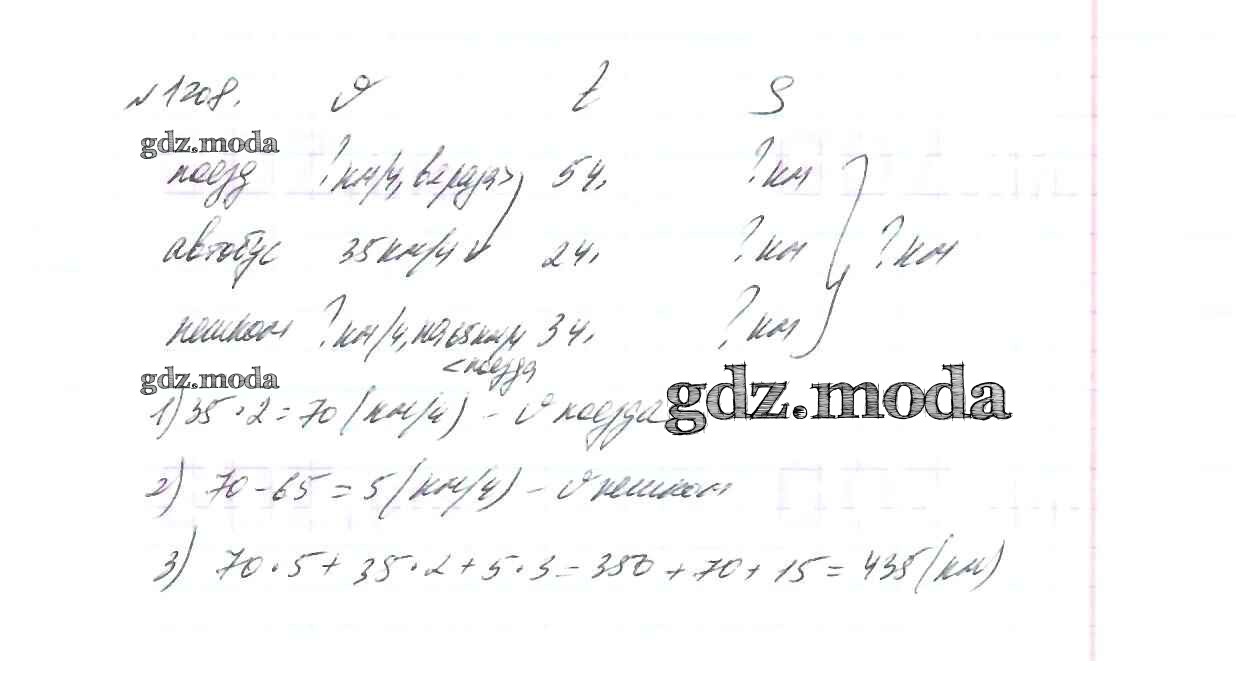 №1208. v t S
gdz.moda
поезд ? км/ч, в 2 раза > 5 ч. ? км
автобус 35 км/ч 2 ч. ? км ? км
пешком ? км/ч, на 65 км/ч 3 ч. ? км
< поезда
gdz.moda
gdz.moda
1) 35 · 2 = 70 (км/ч) - v поезда
2) 70 - 65 = 5 (км/ч) - v пешком
3) 70 · 5 + 35 · 2 + 5 · 3 = 350 + 70 + 15 = 435 (км)